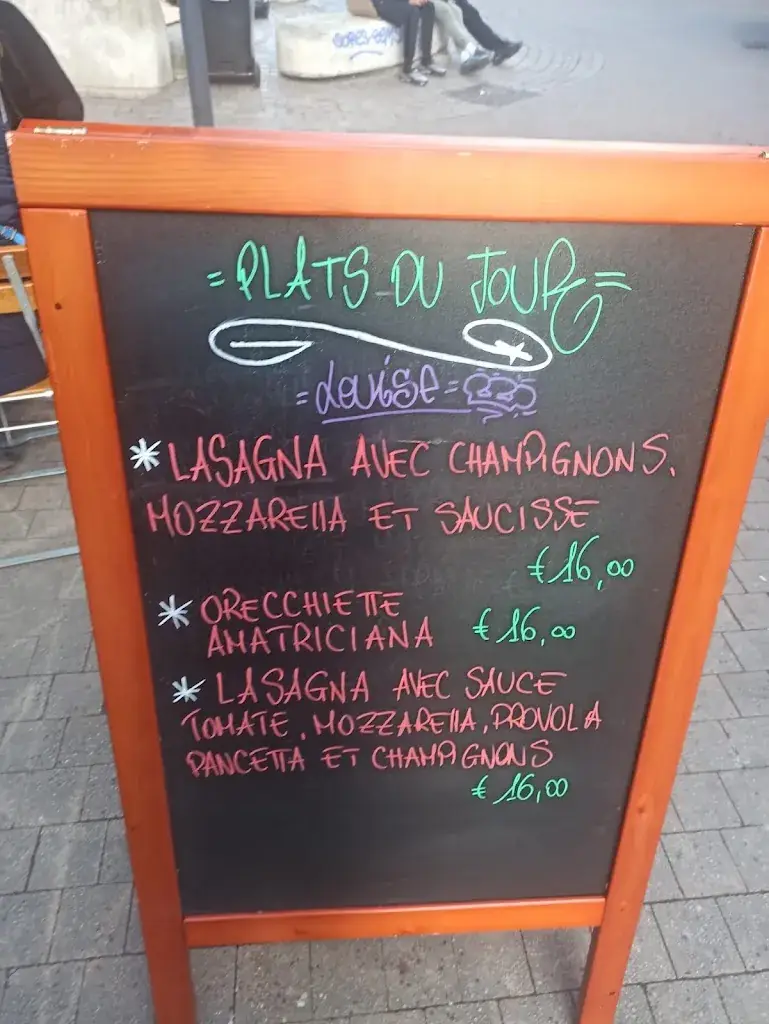 = PLATS DU JOUR =
= Louise =
* LASAGNA AVEC CHAMPIGNONS,
MOZZARELLA ET SAUCISSE
€16,00
* ORECCHIETTE
AMATRICIANA €16,00
* LASAGNA AVEC SAUCE
TOMATE, MOZZARELLA, PROVOLA
PANCETTA ET CHAMPIGNONS
€16,00